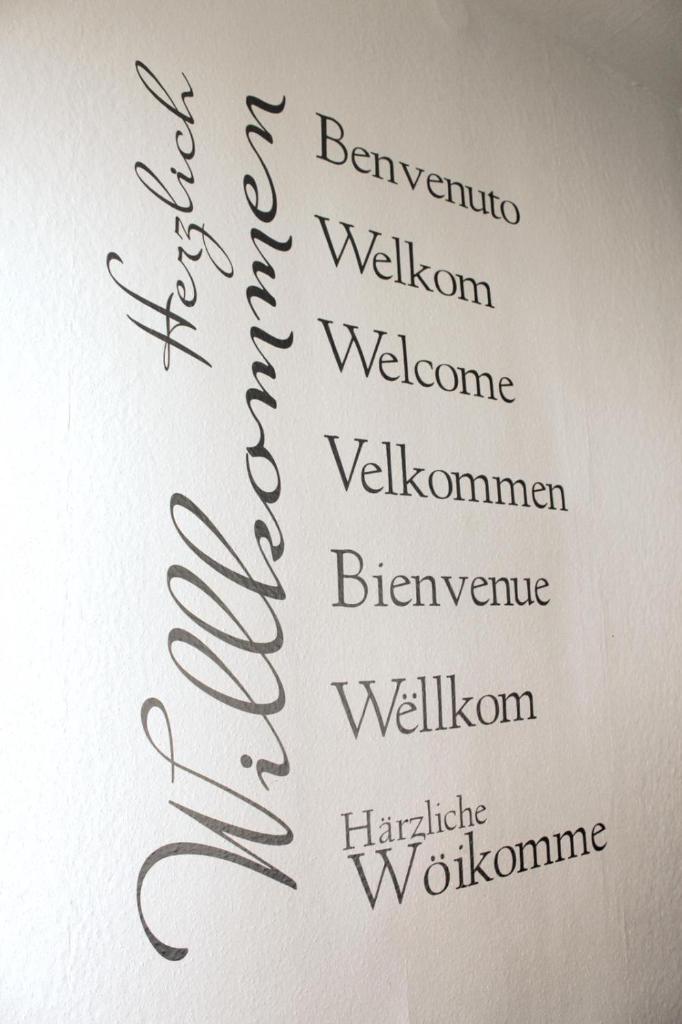 Herzlich
Willkommen
Benvenuto
Welkom
Welcome
Velkommen
Bienvenue
Wëllkom
Härzliche
Wöikomme